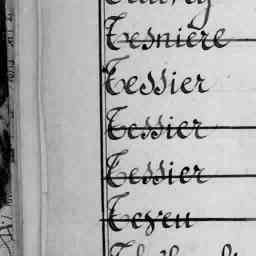 Tesnière
Tessier
Tessier
Tessier
Teyeu